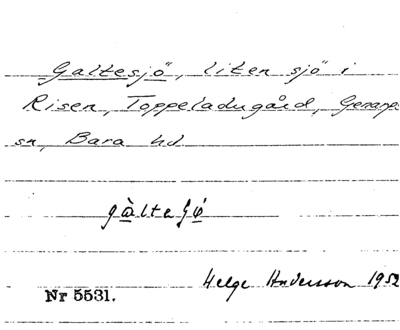 Galtesjö, liten sjö i
Risen, Toppeladugård, Genarps
sn, Bara hd
gàlteʃø
Helge Andersson 1952
Nr 5531.